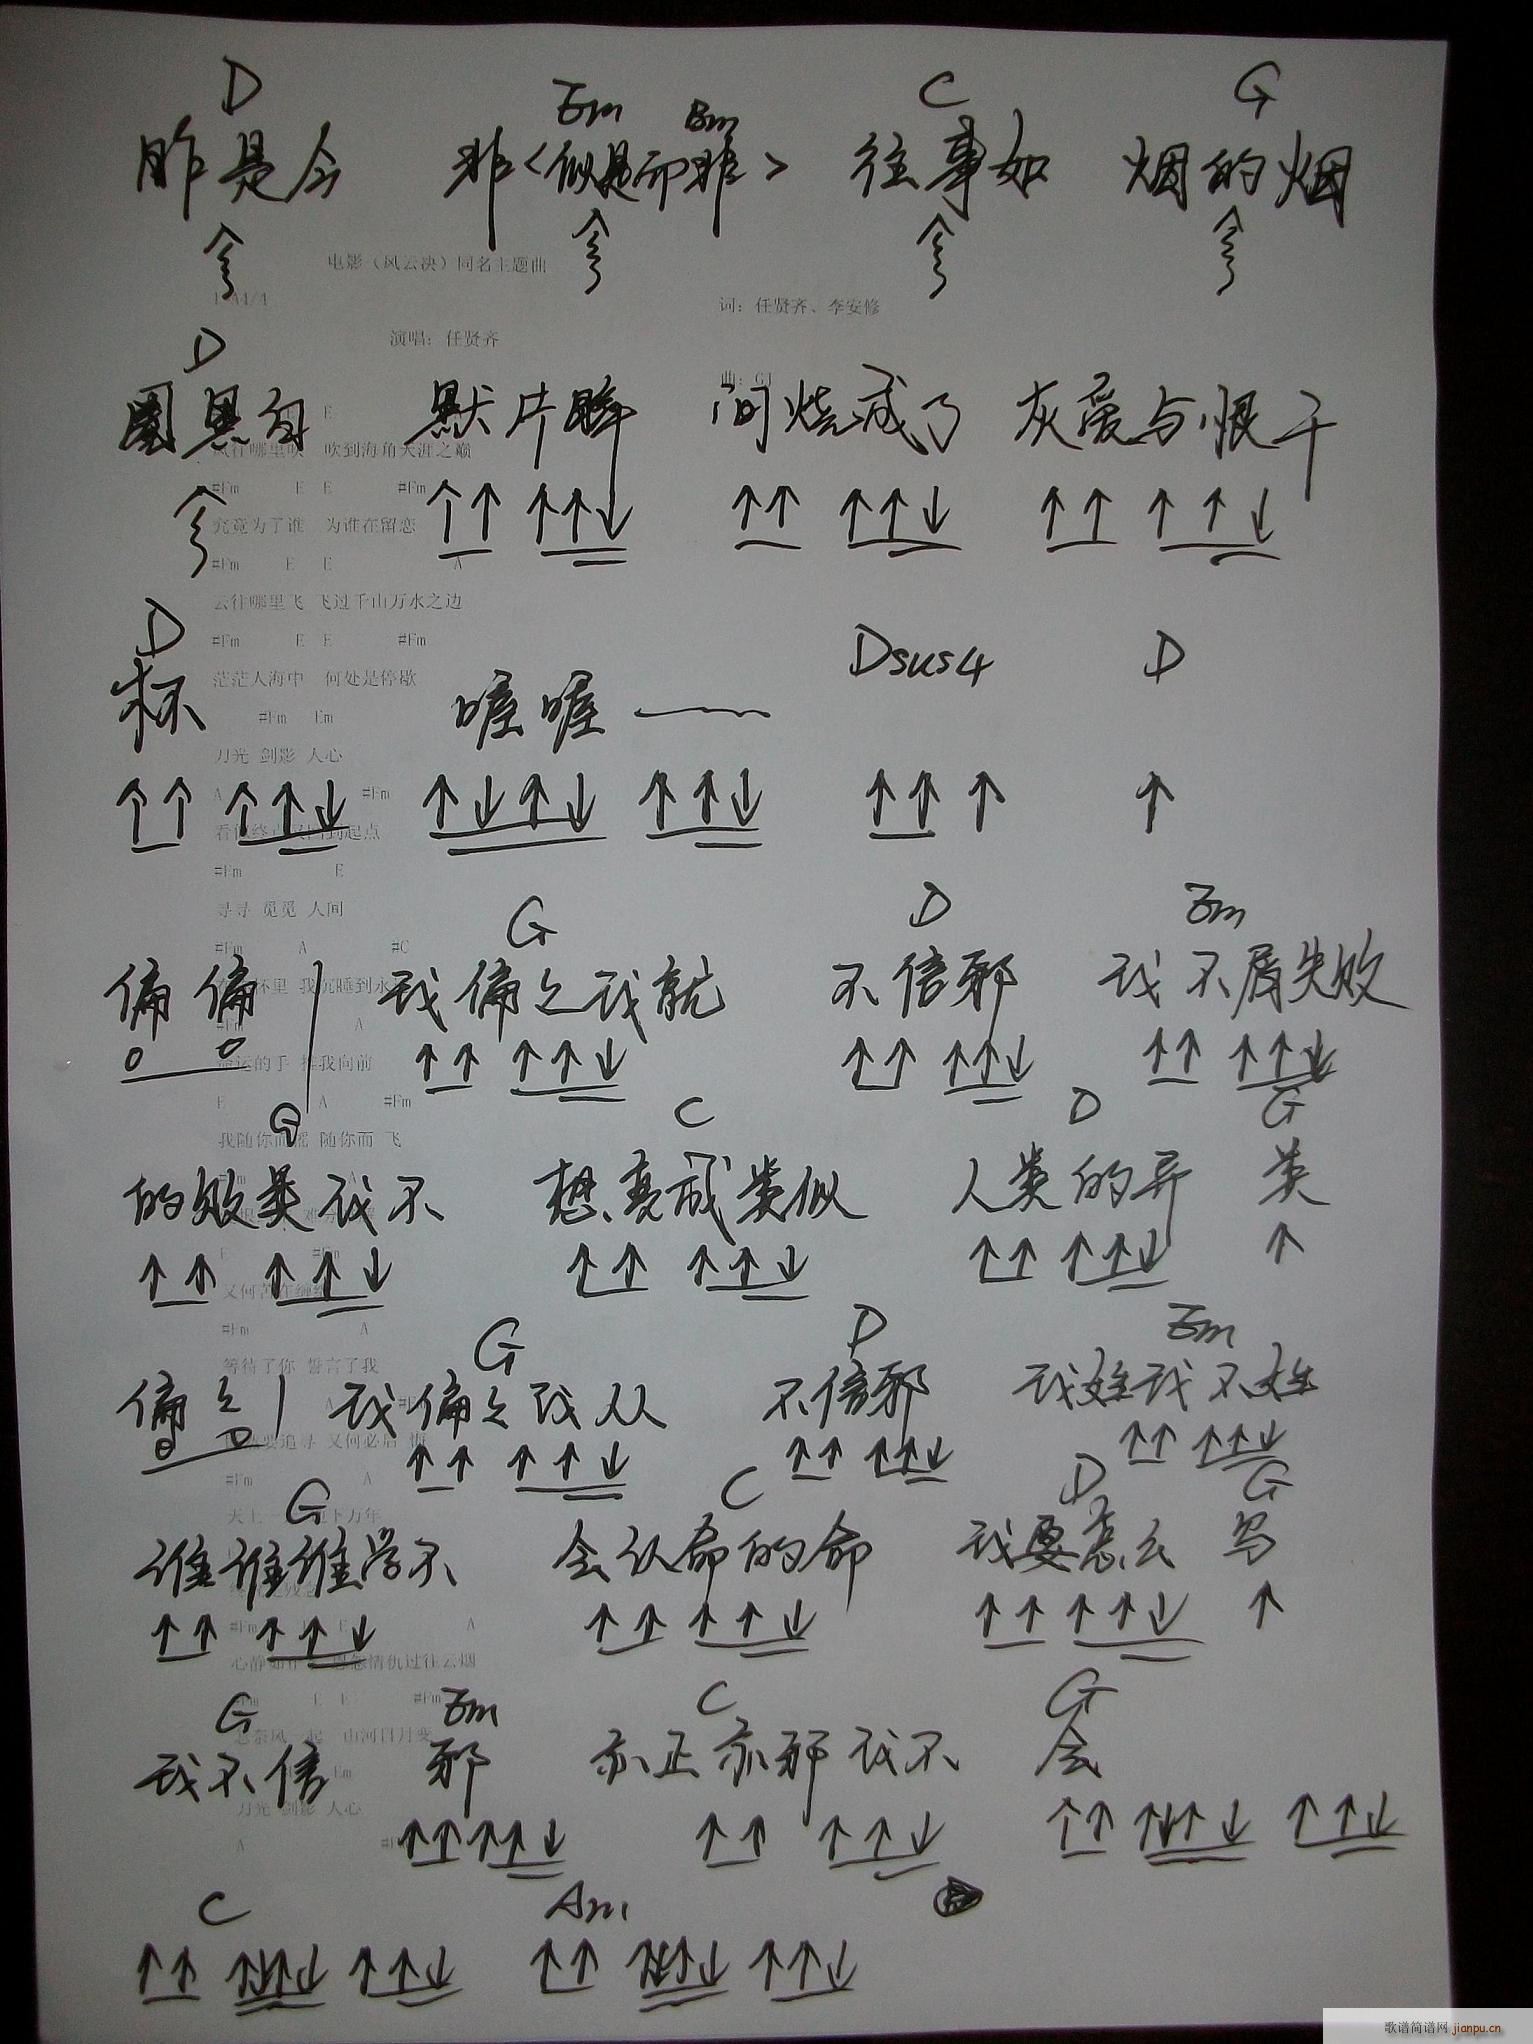 D Em Bm C G
昨是今 非<似是而非> 往事如 烟的烟
电影（风云决）同名主题曲
词：任贤齐、李安修
演唱：任贤齐
D
圈黑白 默片瞬 间烧成了 灰爱与恨干
风往哪里吹 吹到海角天涯之巅
#Fm E E #Fm
究竟为了谁 为谁在留恋
#Fm E E A
云往哪里飞 飞过千山万水之边
D Dsus4 D
#Fm E E #Fm
杯 喔喔
茫茫人海中 何处是停歇
#Fm Em
刀光 剑影 人心
A #Fm
看似终点又回到起点
#Fm E
寻寻 觅觅 人间
G D Em
#Fm A #C
偏偏 我偏々我就 不信邪 我不屑失败
杯里 我沉睡到永
A
命运的手 推我向前
E A #Fm
G C D G
我随你而摇 随你而飞
的败类我不 想变成类似 人类的异 类
又何苦在缠绵
#Fm A
G D Em
等待了你 誓言了我
偏々 我偏々我从 不信邪 我姓我不姓
要追寻 又何必后悔
#Fm A
G C D G
谁谁谁学不 会认命的命 我要怎么写
#Fm E A
心静如 恩怨情仇过往云烟
G Em C G
#Fm
风 起 山河日月变
我不信 邪 亦正亦邪我不 会
Em
刀光 剑影 人心
A
C Am
歌谱简谱网 jianpu.cn